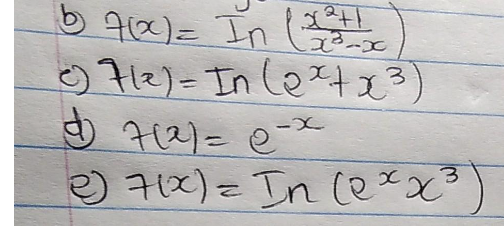 b) f(x) = In (x²+1 / x³-x)
c) f(x) = In (eˣ + x³)
d) f(x) = e⁻ˣ
e) f(x) = In (eˣ x³)